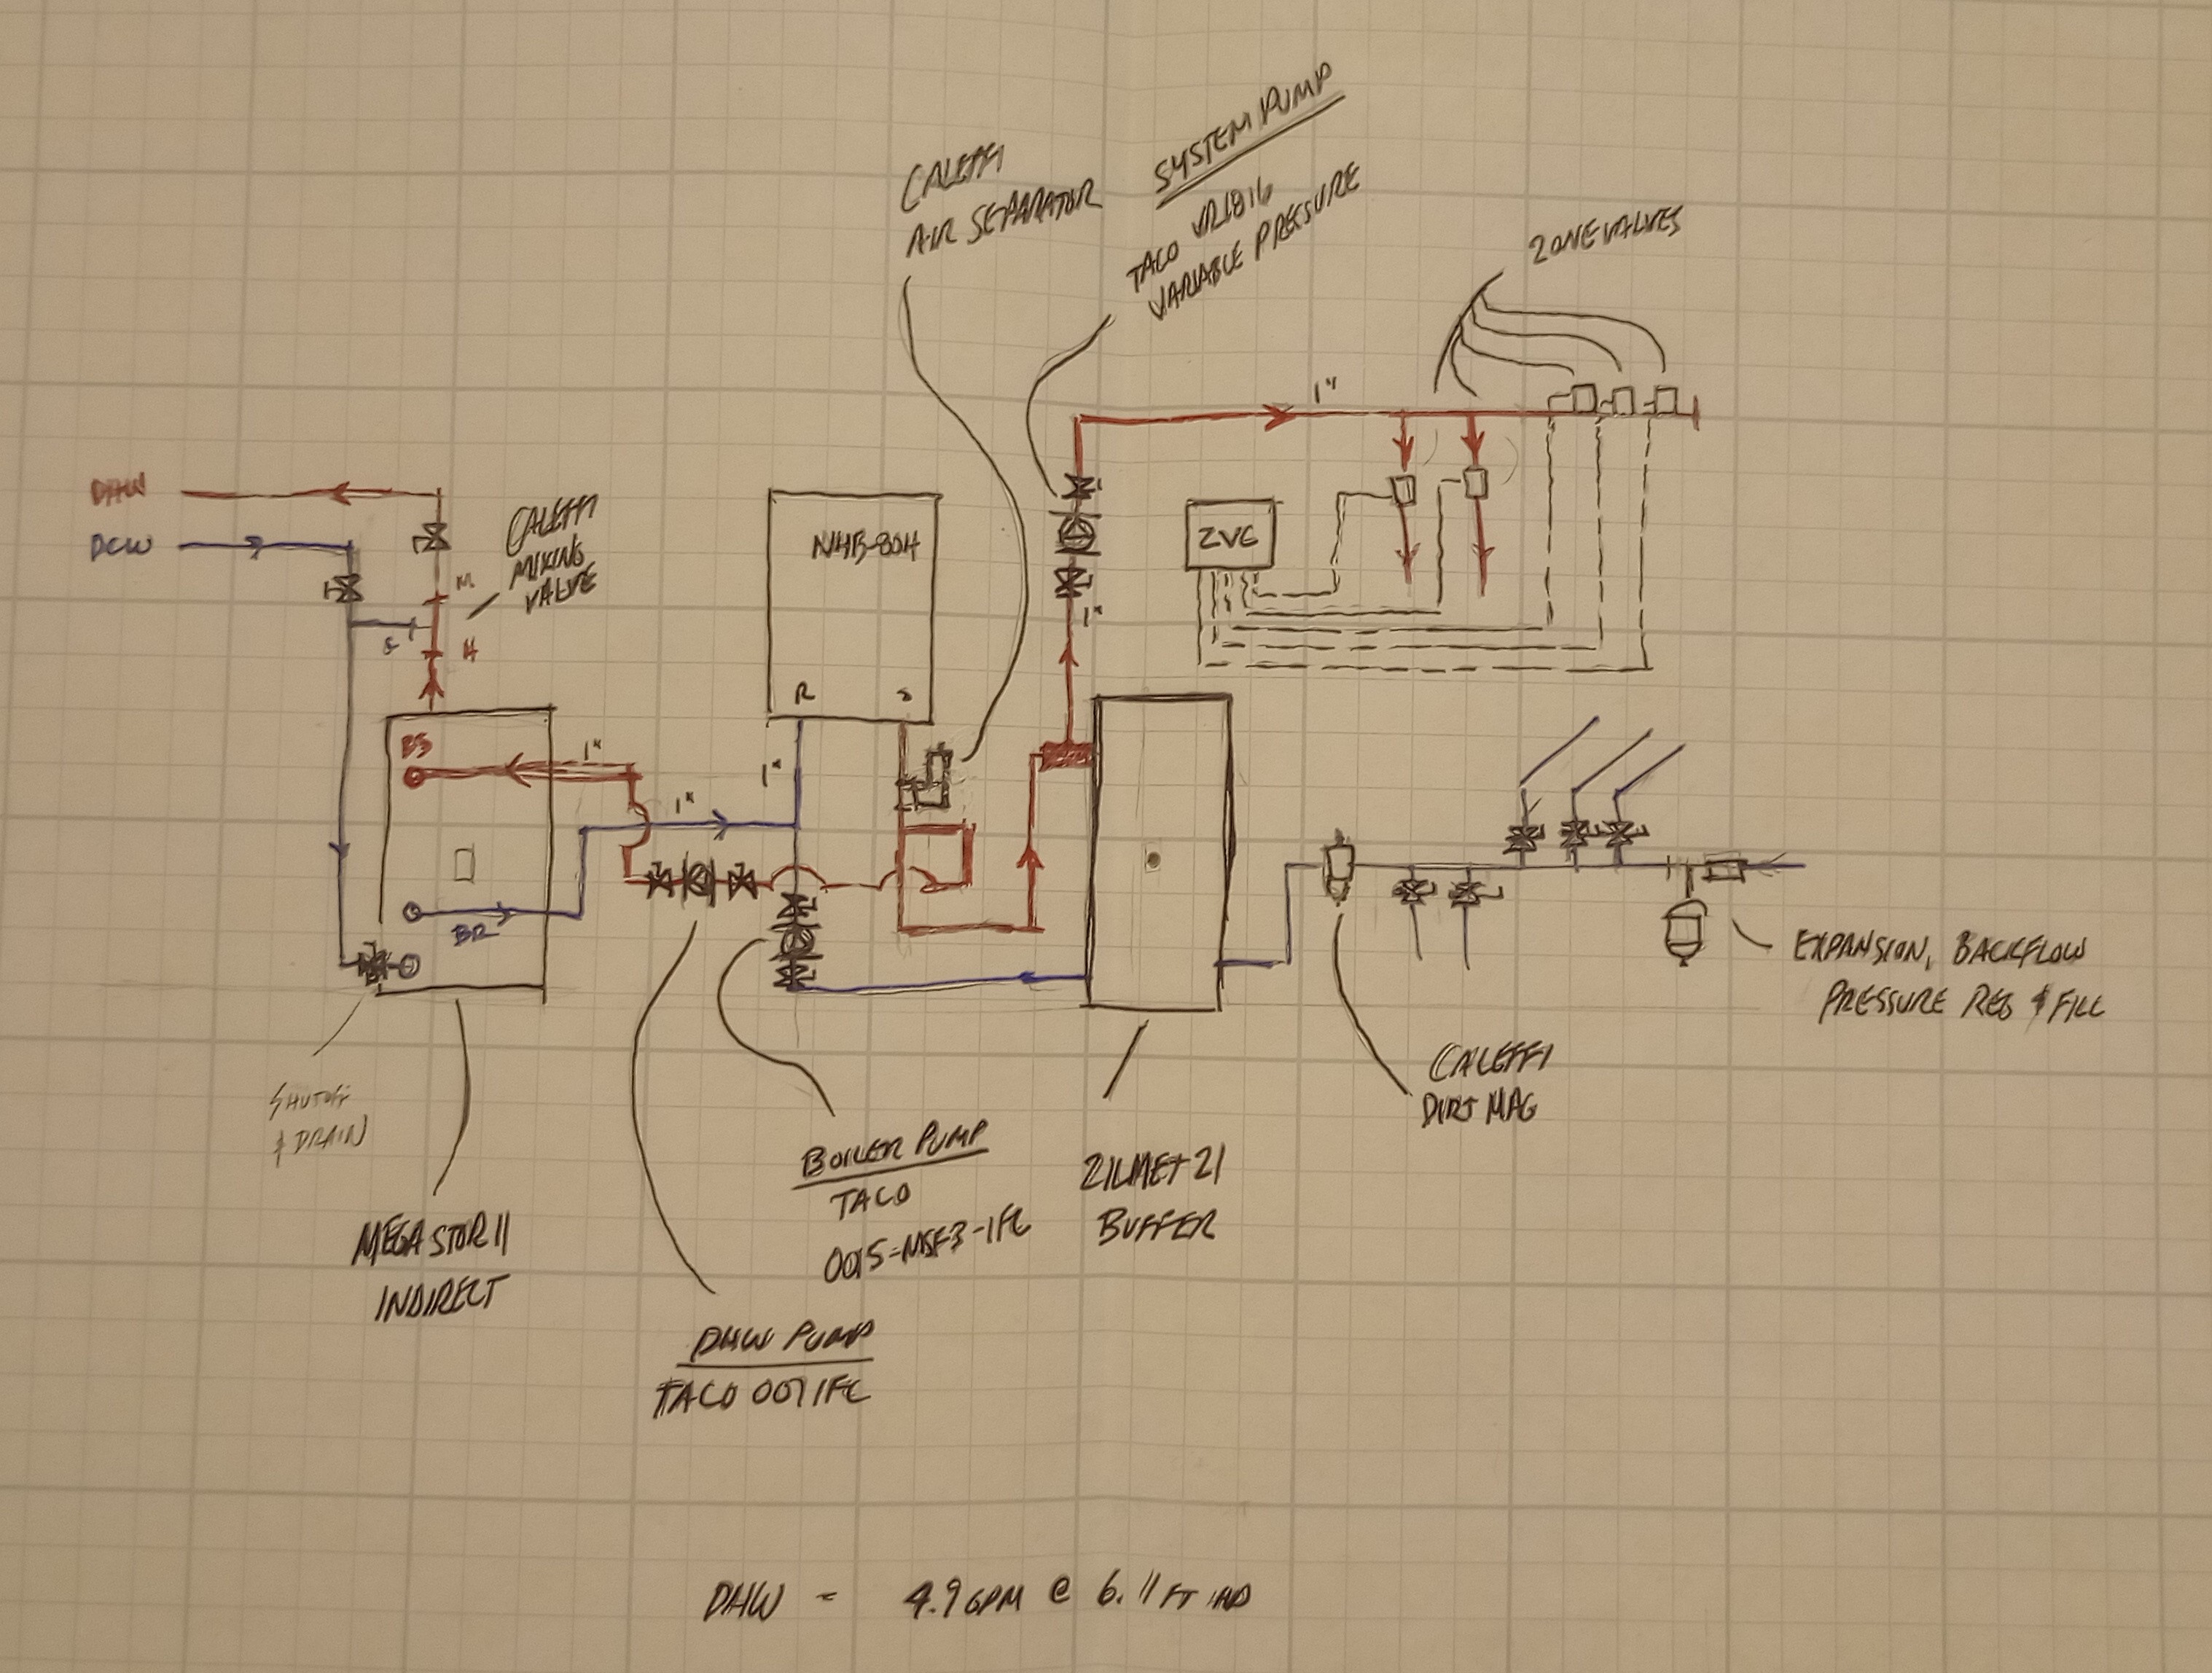 SYSTEM PUMP
TACO VR1816
VARIABLE PRESSURE
CALEFFI
AIR SEPARATOR
ZONE VALVES
1"
DHW
DCW
CALEFFI
MIXING
VALVE
M
C
H
NHB-80H
R
S
ZVC
1"
BS
1"
1"
1"
BR
EXPANSION, BACKFLOW
PRESSURE REG & FILL
CALEFFI
DIRT MAG
SHUTOFF
& DRAIN
BOILER PUMP
TACO
0015-MSF3-IFC
ZILMET 21
BUFFER
MEGA STOR II
INDIRECT
DHW PUMP
TACO 007 IFC
DHW = 4.9 GPM @ 6.11 FT HD